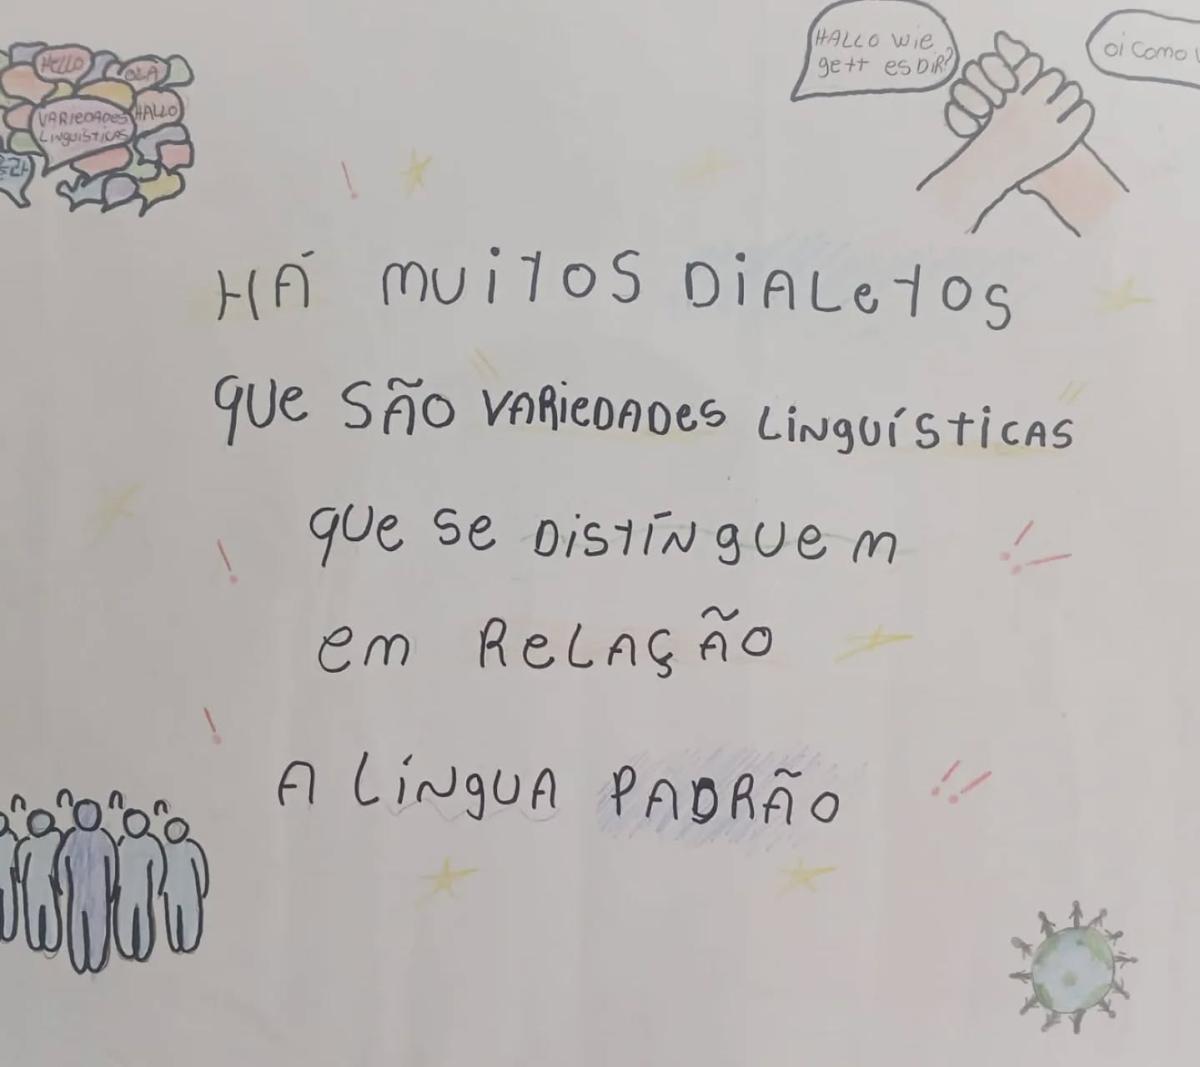 HELLO
OLA
VARIEDADES
LINGUÍSTICAS
HALLO
HALLO wie
gett es DIR?
oi como
HÁ MUITOS DIALETOS
que SÃO VARIEDADES LINGUÍSTICAS
que se DISTINGUEM
em RELAÇÃO
A LÍNGUA PADRÃO